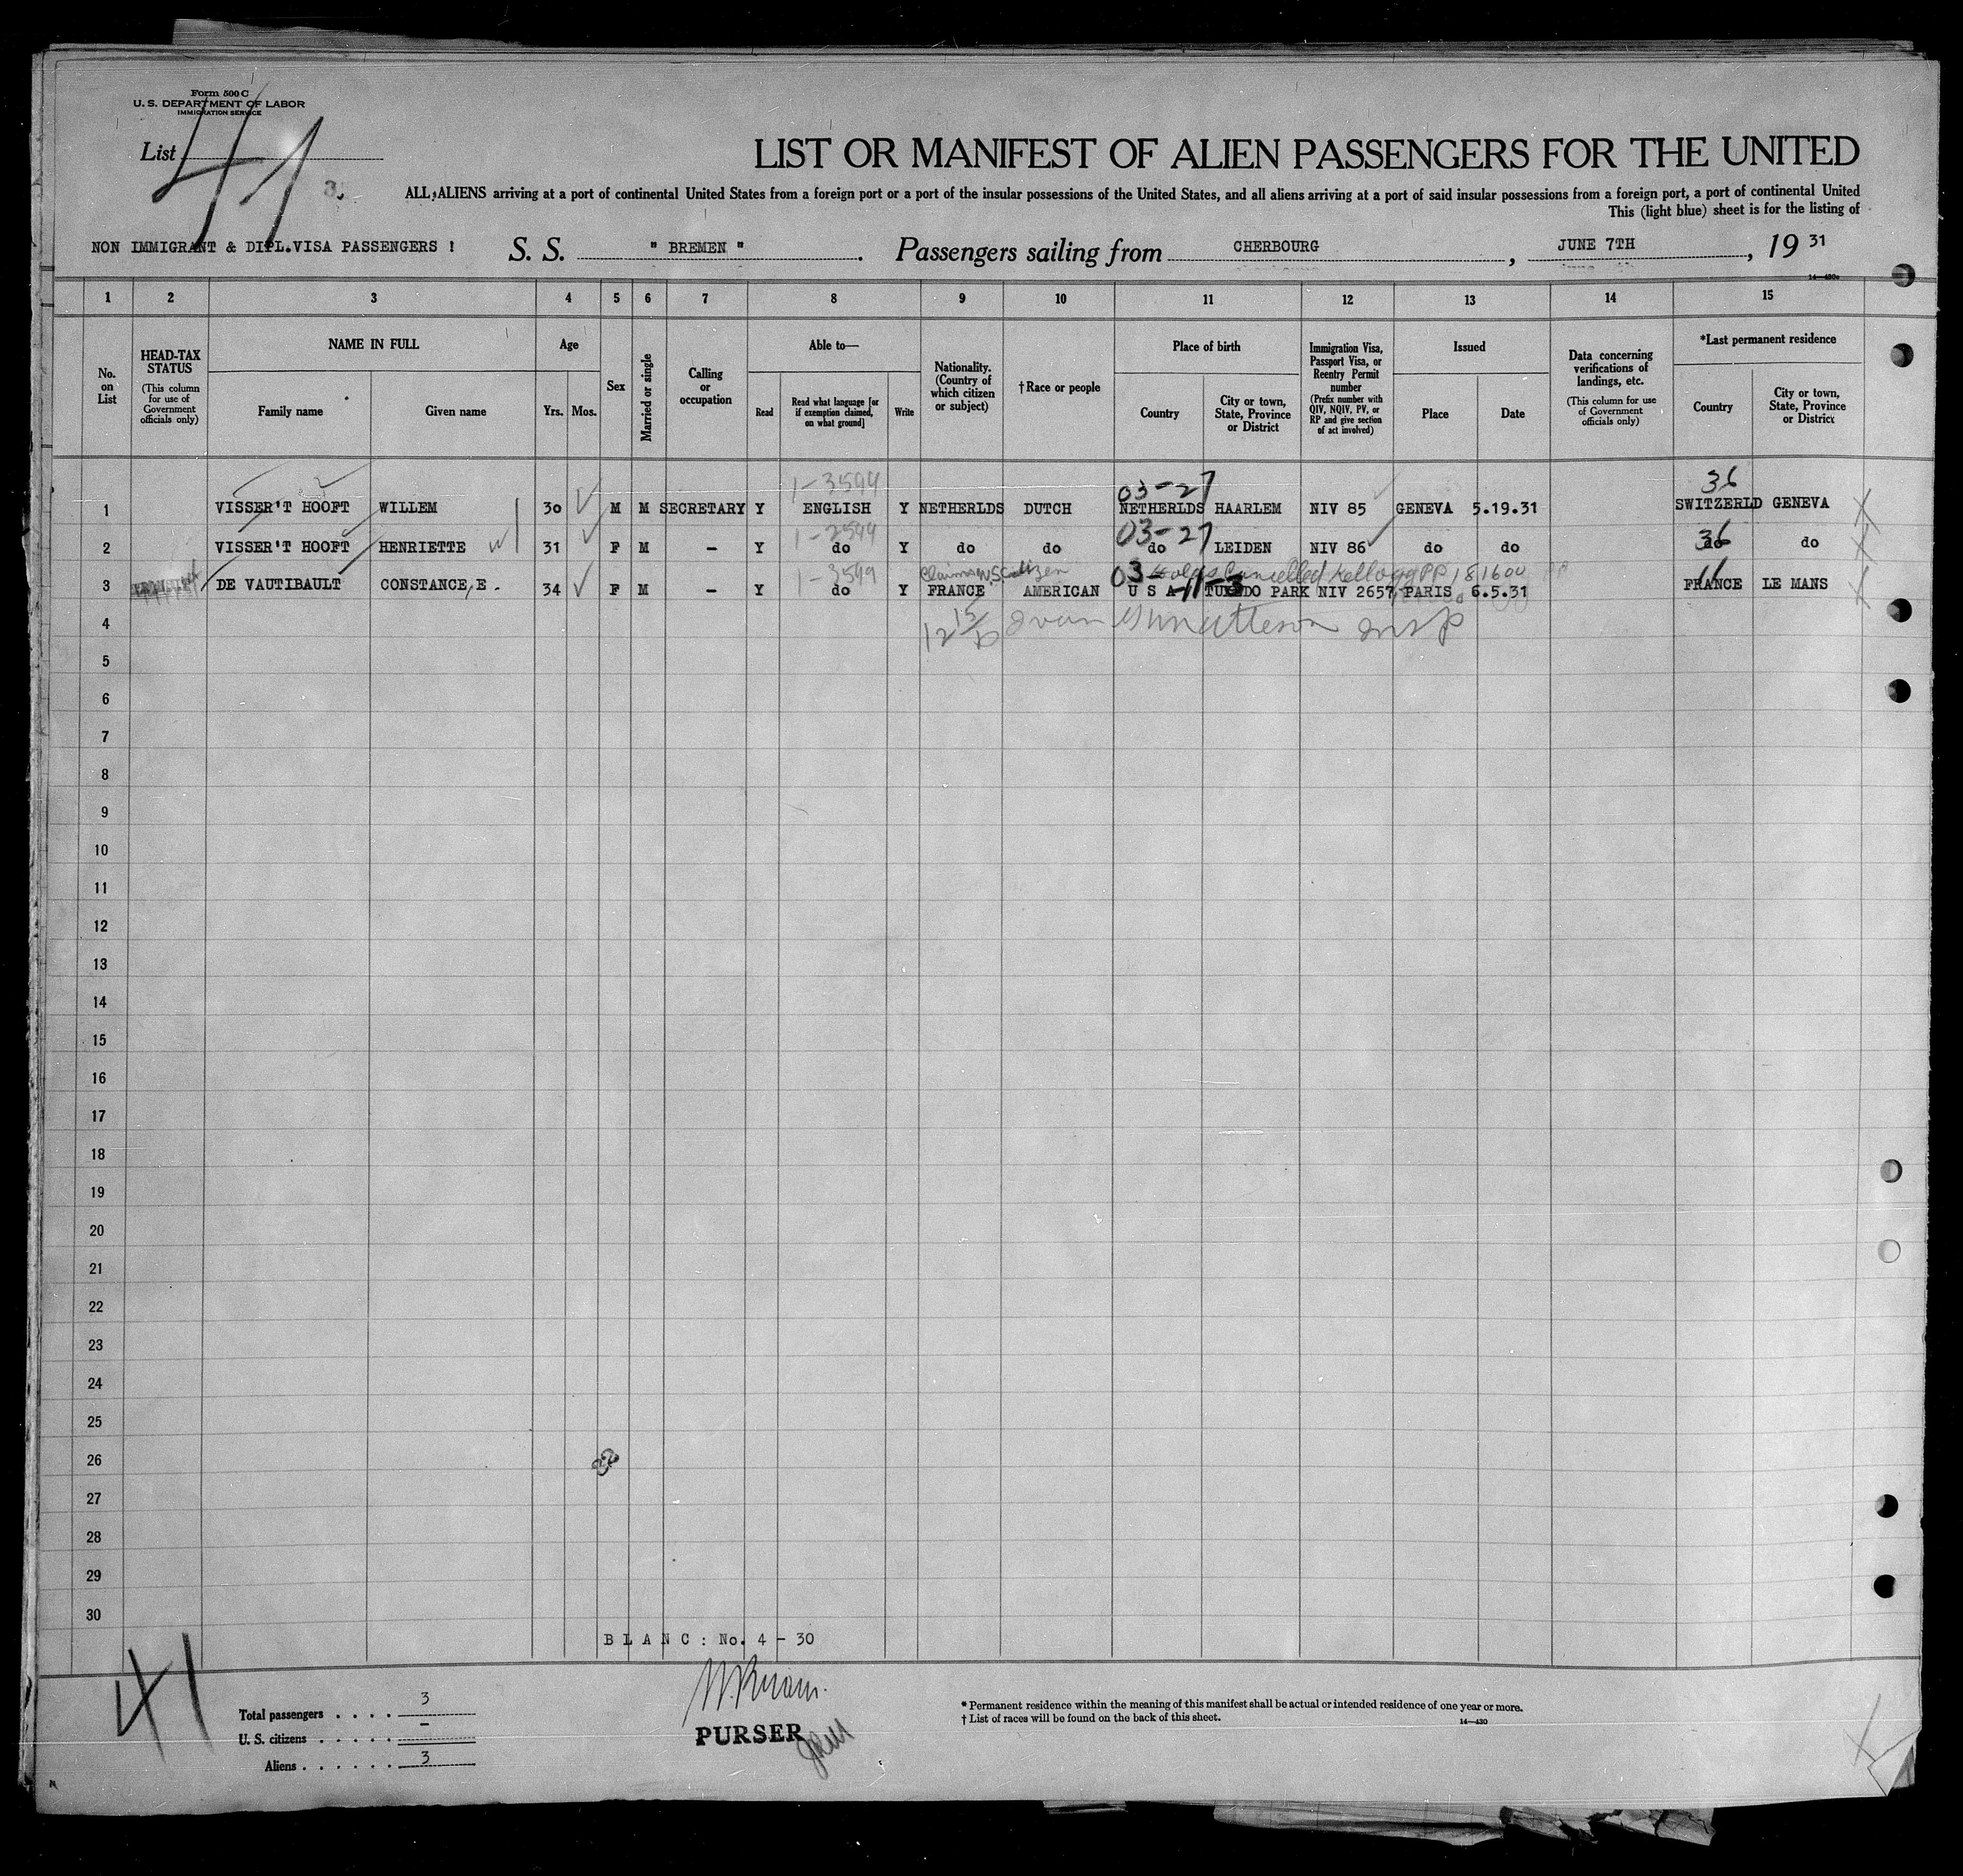 Form 500 C
U. S. DEPARTMENT OF LABOR
IMMIGRATION SERVICE
List 41
3.
LIST OR MANIFEST OF ALIEN PASSENGERS FOR THE UNITED
ALL ALIENS arriving at a port of continental United States from a foreign port or a port of the insular possessions of the United States, and all aliens arriving at a port of said insular possessions from a foreign port, a port of continental United
This (light blue) sheet is for the listing of
NON IMMIGRANT & DIPL.VISA PASSENGERS ! S. S. " BREMEN ". Passengers sailing from CHERBOURG, JUNE 7TH, 19 31
14—430c
1 2 3 4 5 6 7 8 9 10 11 12 13 14 15
No. on List
HEAD-TAX STATUS
(This column for use of Government officials only)
NAME IN FULL
Family name
Given name
Age
Yrs. Mos.
Sex
Married or single
Calling or occupation
Able to—
Read
Read what language [or if exemption claimed, on what ground]
Write
Nationality. (Country of which citizen or subject)
†Race or people
Place of birth
Country
City or town, State, Province or District
Immigration Visa, Passport Visa, or Reentry Permit number
(Prefix number with QIV, NQIV, PV, or RP and give section of act involved)
Issued
Place
Date
Data concerning verifications of landings, etc.
(This column for use of Government officials only)
*Last permanent residence
Country
City or town, State, Province or District
1-3594 03-27 36
1 VISSER'T HOOFT WILLEM 30 M M SECRETARY Y ENGLISH Y NETHERLDS DUTCH NETHERLDS HAARLEM NIV 85 GENEVA 5.19.31 SWITZERLD GENEVA
1-2594 03-27 36
2 VISSER'T HOOFT HENRIETTE 31 F M - Y do Y do do do LEIDEN NIV 86 do do do do
1-3599 Claims U.S. Citizen 03-11-3 Holds Cancelled Kellogg PP 181600 11
3 DE VAUTIBAULT CONSTANCE, E. 34 F M - Y do Y FRANCE AMERICAN U S A TUXEDO PARK NIV 2657 PARIS 6.5.31 FRANCE LE MANS
4
5
6
7
8
9
10
11
12
13
14
15
16
17
18
19
20
21
22
23
24
25
26
27
28
29
30
B L A N C : No. 4 - 30
41
Total passengers . . . . 3
U. S. citizens . . . . . -
Aliens . . . . . . 3
PURSER
* Permanent residence within the meaning of this manifest shall be actual or intended residence of one year or more.
† List of races will be found on the back of this sheet.
14—430